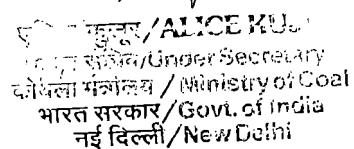 /ALICE KU
सचिव/Under Secretary
कोयला मंत्रालय / Ministry of Coal
भारत सरकार/Govt. of India
नई दिल्ली/New Delhi